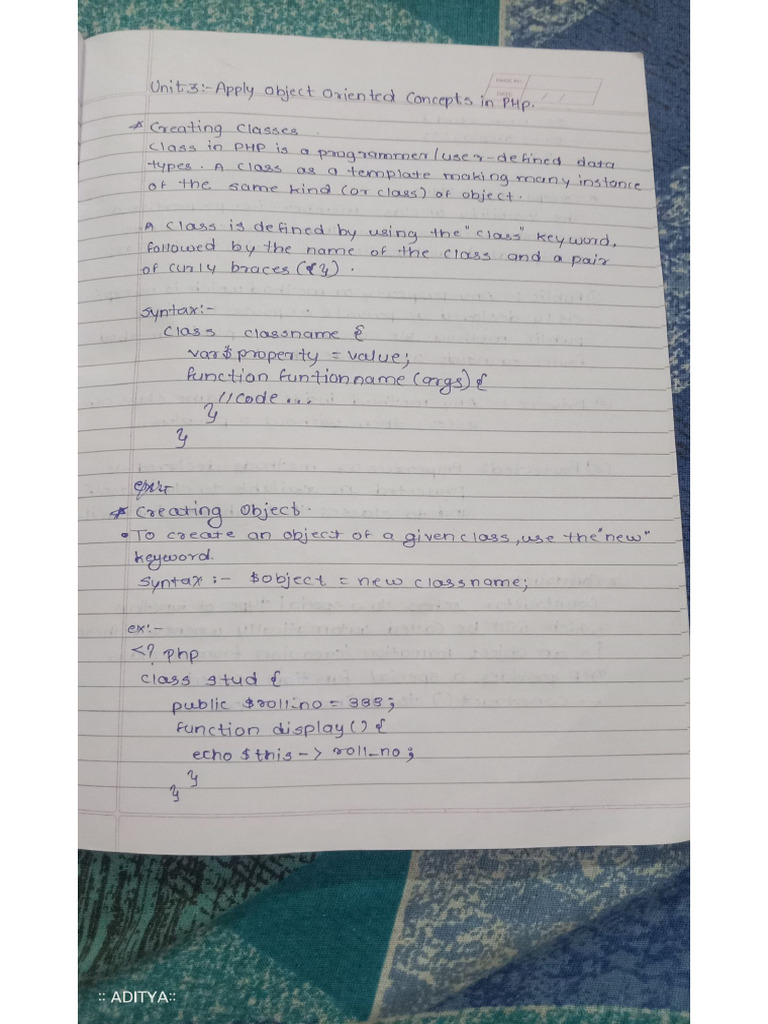 PAGE NO.
DATE / /
Unit 3:- Apply Object Oriented Concepts in PHP.
* Creating Classes.
Class in PHP is a programmer/user-defined data
types. A class as a template making many instance
of the same kind (or class) of object.
A class is defined by using the "class" keyword,
followed by the name of the class and a pair
of curly braces ({}).
syntax:-
class classname {
var $property = value;
function funtionname (args) {
//code ...
}
}
* Creating Object.
• To create an object of a given class, use the "new"
keyword.
syntax :- $object = new classname;
ex:-
<? php
class stud {
public $roll_no = 333;
function display() {
echo $this -> roll_no;
}
}
:: ADITYA::